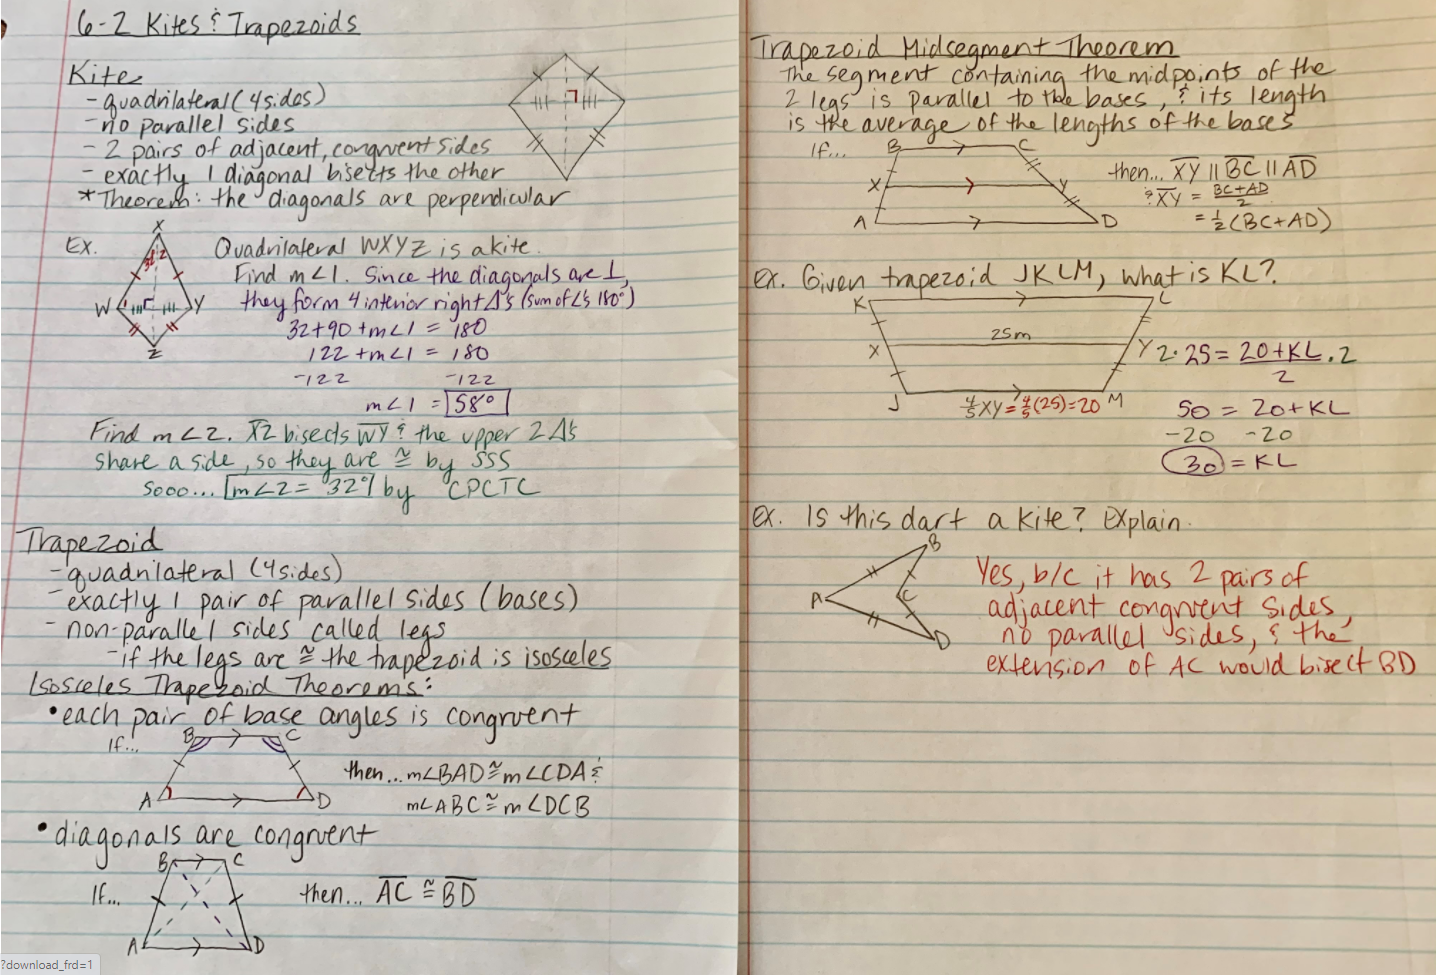 6-2 Kites & Trapezoids
Kite
- quadrilateral (4 sides)
- no parallel sides
- 2 pairs of adjacent, congruent sides
- exactly 1 diagonal bisects the other
* Theorem: the diagonals are perpendicular
Ex.
X
W
Y
Z
32
1
Quadrilateral WXYZ is a kite.
Find m∠1. Since the diagonals are ⊥,
they form 4 interior right Δ's (sum of ∠'s 180°)
32+90+m∠1 = 180
122 + m∠1 = 180
-122 -122
m∠1 = 58°
Find m∠2. XZ bisects WY & the upper 2 Δ's
share a side, so they are ≅ by SSS
Sooo... m∠2 = 32° by CPCTC
Trapezoid
- quadrilateral (4 sides)
- exactly 1 pair of parallel sides (bases)
- non-parallel sides called legs
- if the legs are ≅ the trapezoid is isosceles
Isosceles Trapezoid Theorems:
• each pair of base angles is congruent
If...
B C
A D
then... m∠BAD ≅ m∠CDA &
m∠ABC ≅ m∠DCB
• diagonals are congruent
B C
If...
A D
then... AC ≅ BD
?download_frd=1
Trapezoid Midsegment Theorem
The segment containing the midpoints of the
2 legs is parallel to the bases, & its length
is the average of the lengths of the bases
If...
B C
X Y
A D
then... XY || BC || AD
& XY = BC+AD
2
= ½(BC+AD)
Ex. Given trapezoid JKLM, what is KL?
K L
25m
X Y
J M
4/5 XY = 4/5(25) = 20
2 · 25 = 20+KL · 2
2
50 = 20+KL
-20 -20
30 = KL
Ex. Is this dart a kite? Explain.
B
A
C
D
Yes, b/c it has 2 pairs of
adjacent congruent sides,
no parallel sides, & the
extension of AC would bisect BD